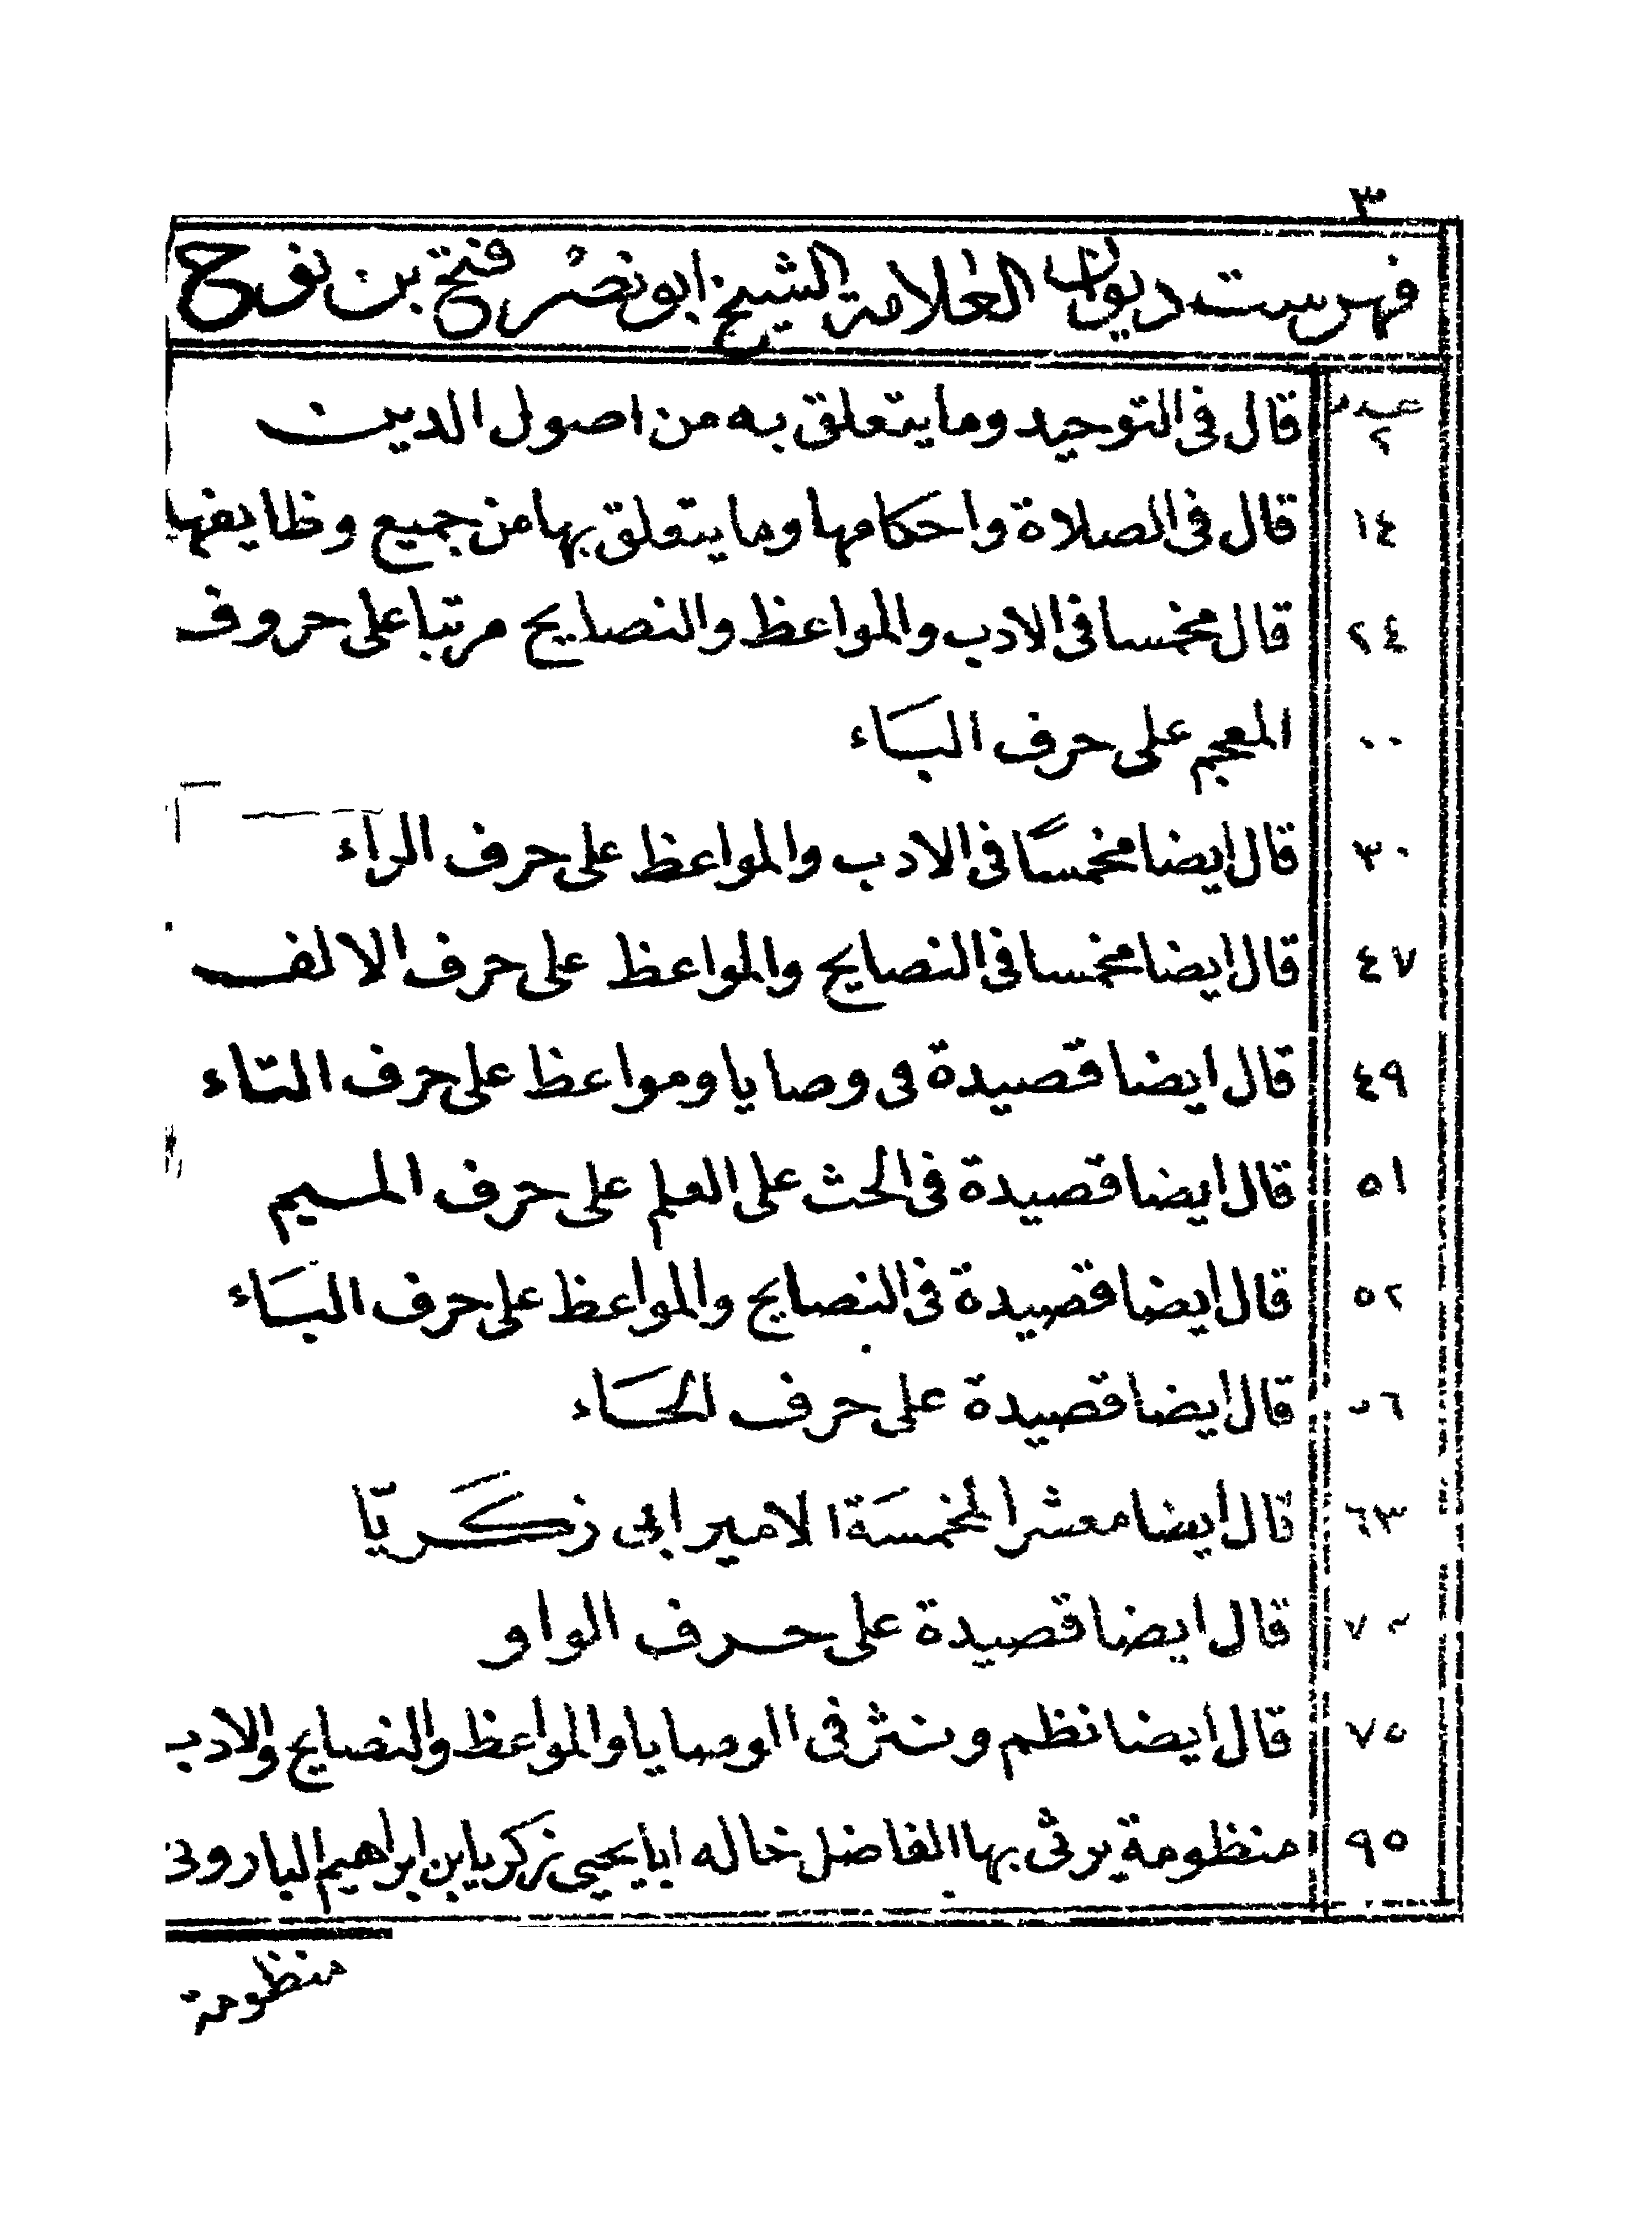 ٣
فهرست ديوان العلامة الشيخ ابو نصر فتح بن نوح
عدد ٢ قال في التوحيد وما يتعلق به من اصول الدين
١٤ قال في الصلاة واحكامها وما يتعلق بها من جميع وظايفها
٢٤ قال مخمسا في الادب والمواعظ والنصايح مرتبا على حروف
٠٠ المعجم على حرف الباء
٣٠ قال ايضا مخمسًا في الادب والمواعظ على حرف الراء
٤٧ قال ايضا مخمسا في النصايح والمواعظ على حرف الالف
٤٩ قال ايضا قصيدة في وصايا ومواعظ على حرف التاء
٥١ قال ايضا قصيدة في الحث على العلم على حرف الميم
٥٢ قال ايضا قصيدة في النصايح والمواعظ على حرف الباء
٥٦ قال ايضا قصيدة على حرف الحاء
٦٣ قال ايضا معشر المخمسة الامير ابي زكريّا
٧٢ قال ايضا قصيدة على حرف الواو
٧٥ قال ايضا نظم ونثر في الوصايا والمواعظ والنصايح والادب
٩٥ منظومة يرثى بها الفاضل خاله ابا يحيى زكريا بن ابراهيم الباروني
منظومة